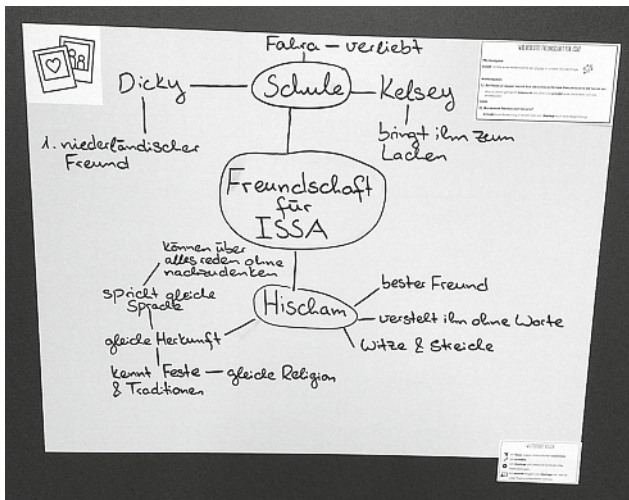 Fahra – verliebt
Schule
Dicky
Kelsey
1. niederländischer
Freund
bringt ihm zum
Lachen
Freundschaft
für
ISSA
können über
alles reden ohne
nachzudenken
spricht gleiche
Sprache
gleiche Herkunft
kennt Feste – gleiche Religion
& Traditionen
Hischam
bester Freund
verstelt ihm ohne Worte
Witze & Streiche